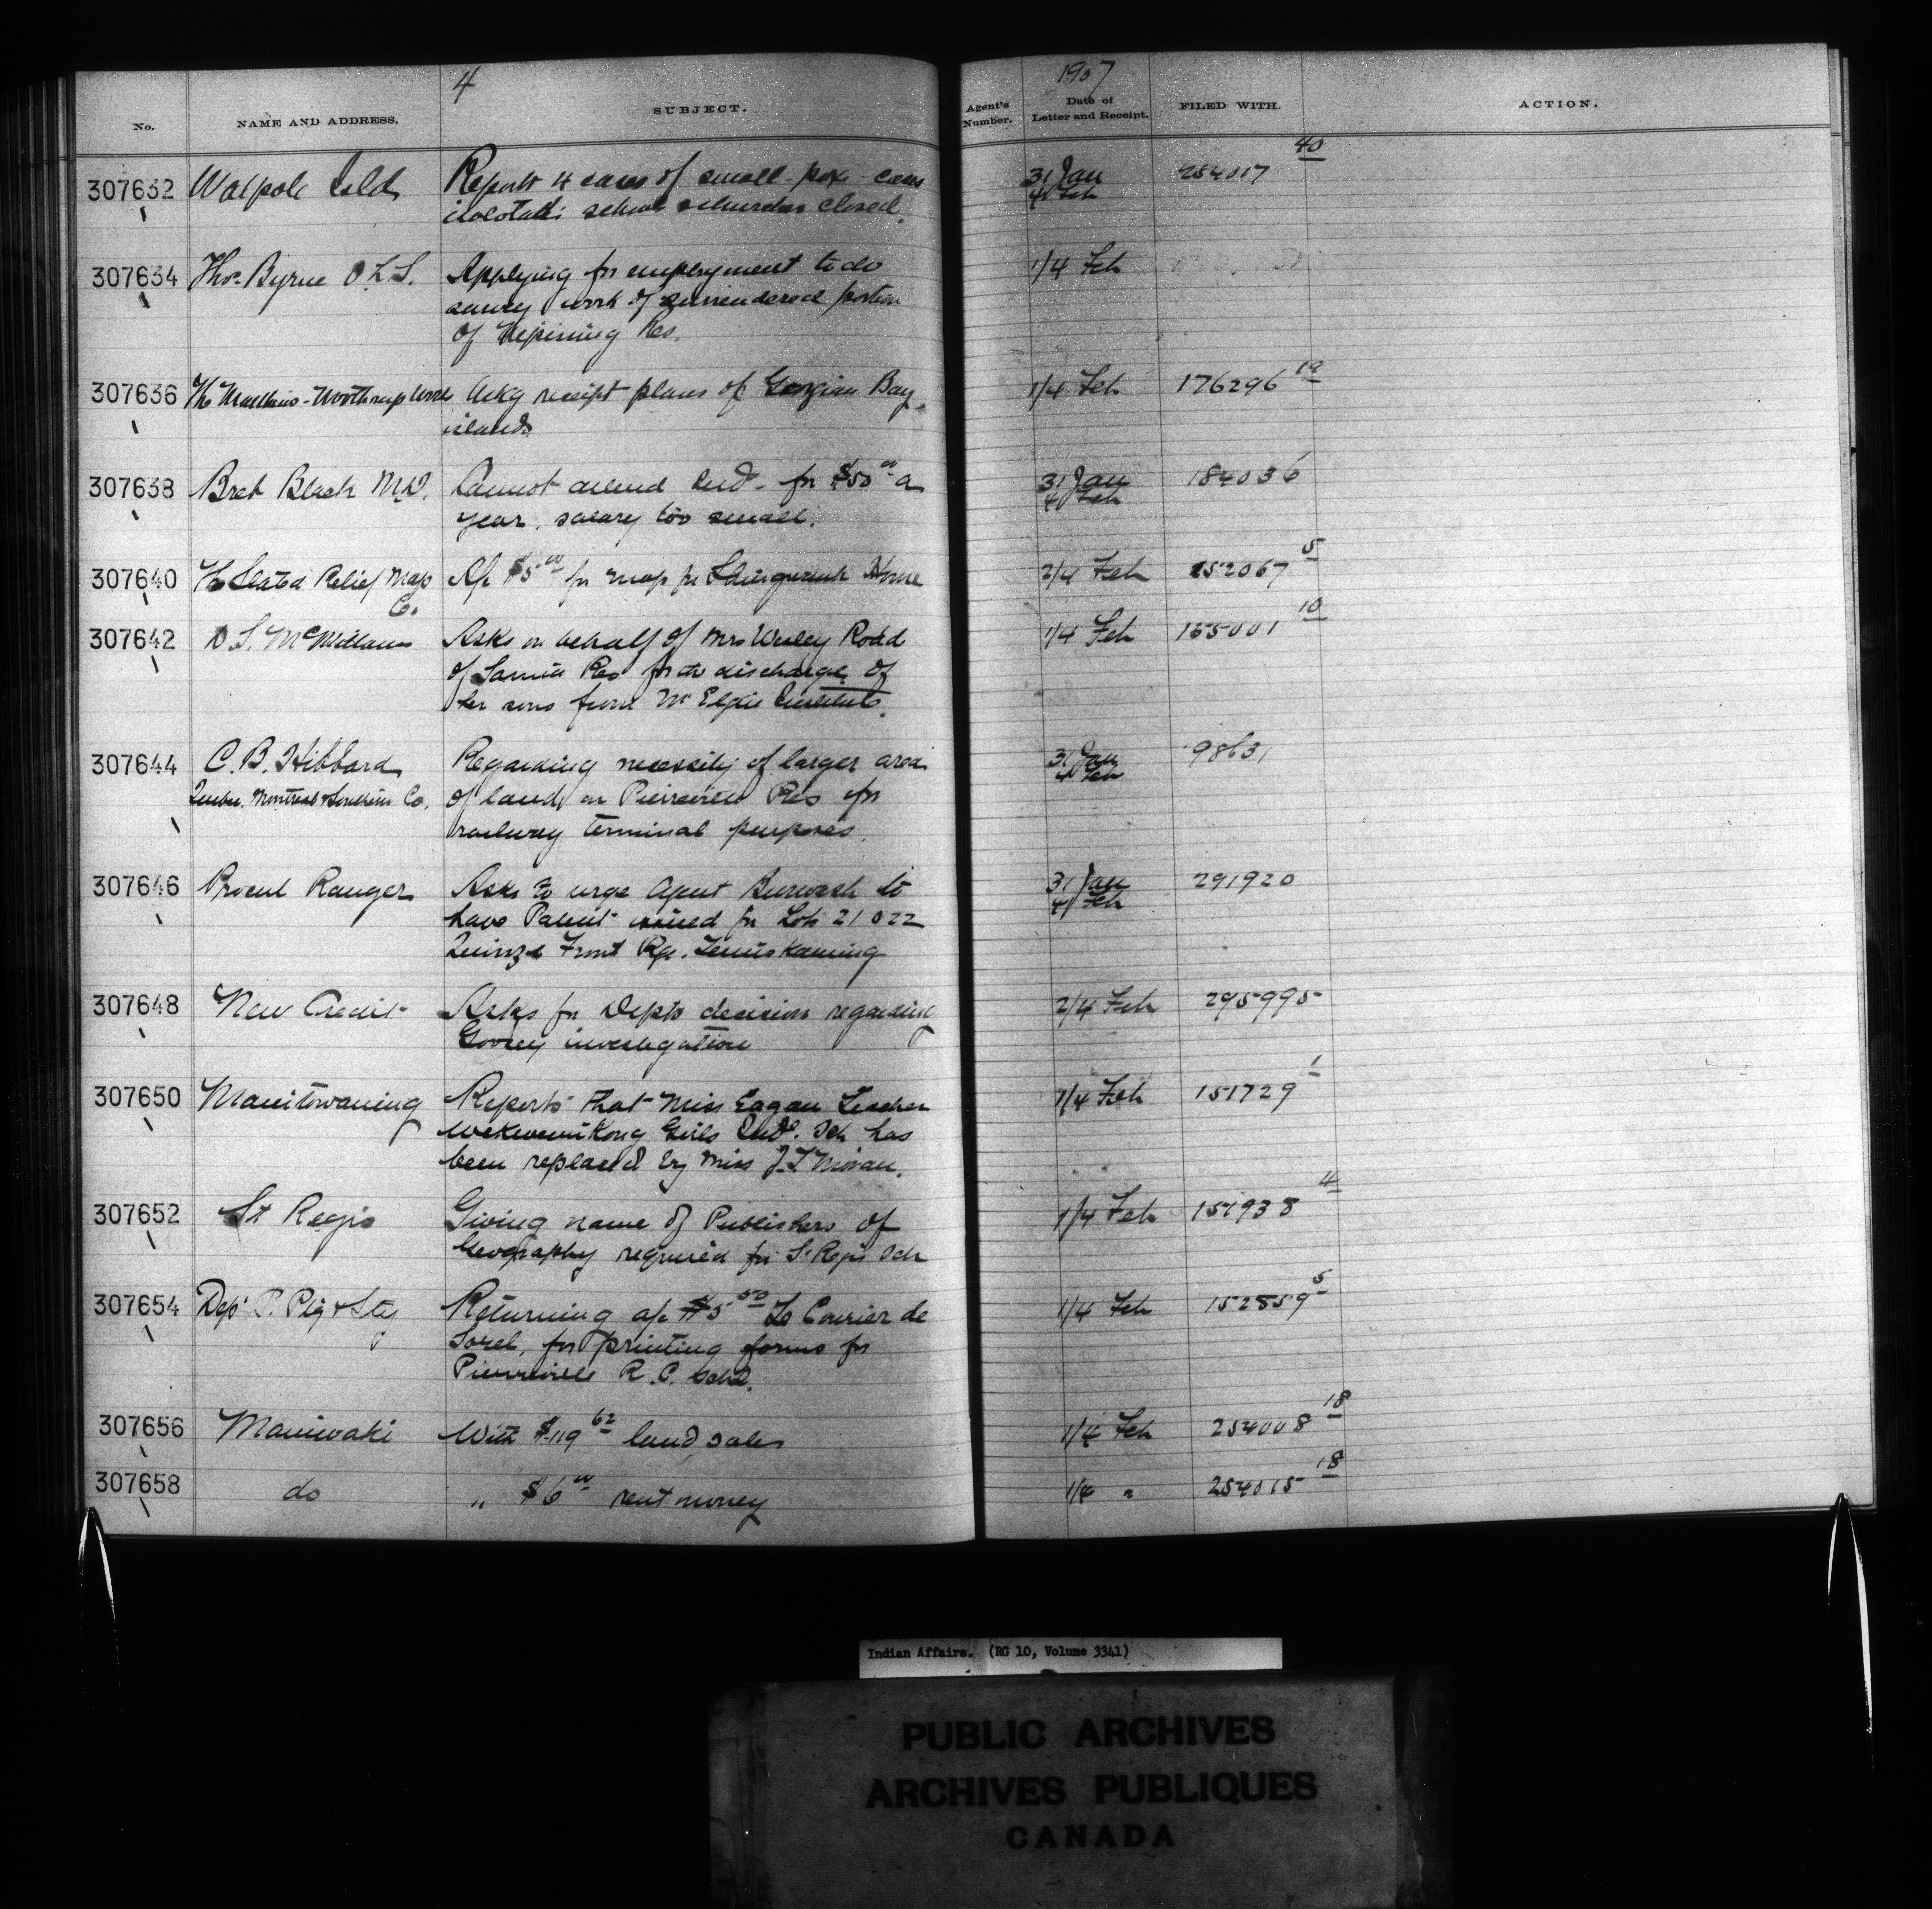 4
1907
No.
NAME AND ADDRESS.
SUBJECT.
Agent's Number.
Date of Letter and Receipt.
FILED WITH.
ACTION.
307632 Walpole Isld Reports 4 cases of small-pox cases 31 Jan 40
isolated: school & churches closed. 4 Feb
307634 Thos. Byrne O.L.S. Applying for employment to do 1/4 Feb
survey work of surrendered portion
of Res.
307636 The Matthews-Northrup Works Ackg receipt plans of Georgian Bay 1/4 Feb 176296
islands
307638 Black M.D. Cannot attend Inds for $50 00 a 31 Jan 184036
year, salary too small. 4 Feb
307640 The Relief Map Co. A/c $5 00 for map for Shingwauk Home 2/4 Feb 152067 5
307642 D. S. McMillan Asks on behalf of Mrs Wesley Rodd 1/4 Feb 10
of Sarnia Res for the discharge of
her sons from Mt Elgin Institute.
307644 C. B. Hibbard Regarding necessity of larger area 31 Jan 98631
Quebec, Montreal & Southern Co. of land on Pierreville Res for 4 Feb
railway terminal purposes.
307646 Ranger Asks to urge Agent Burwash to 31 Jan 291920
have Patent issued for Lots 21 & 22 4 Feb
Quinze Front Rge. Temiskaming
307648 New Credit Asks for Depts decision regarding 2/4 Feb 295995
investigation
307650 Manitowaning Reports that Miss Eagan Teacher 1/4 Feb 151729 1
Wekwemikong Girls Indl. Sch has
been replaced by Miss Moran.
307652 St Regis Giving name of Publishers of 1/4 Feb 4
Geography required for St Regis Sch
307654 Dept P. Ptg & Sty Returning a/c $5 50 Le Courier de 1/4 Feb 152859 5
Sorel, for printing forms for
Pierreville R.C. Schl.
307656 Maniwaki With $119 62 land sales 1/4 Feb 254008 18
307658 do " $6 00 rent money 1/4 " 254015 18
Indian Affairs. (RG 10, Volume 3341)
PUBLIC ARCHIVES
ARCHIVES PUBLIQUES
CANADA